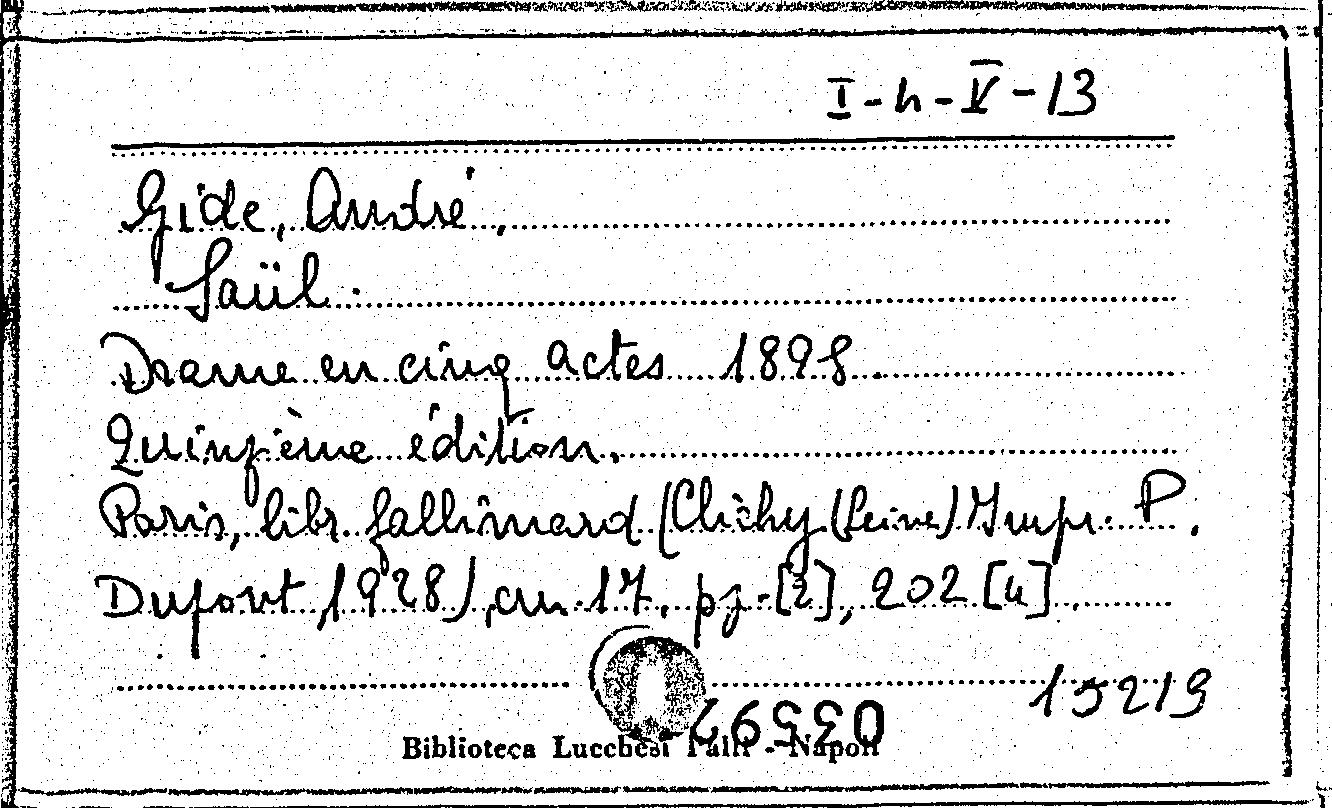 I-h-V-13
Gide, André,
Saül.
Drame en cinq actes 1898.
Quinzième édition.
Paris, libr. Gallimard (Clichy (Seine) Impr. P.
Dupont, 1928), cm. 17, pg. [2], 202 [4].
15219
Biblioteca Lucchesi Palli - Napoli